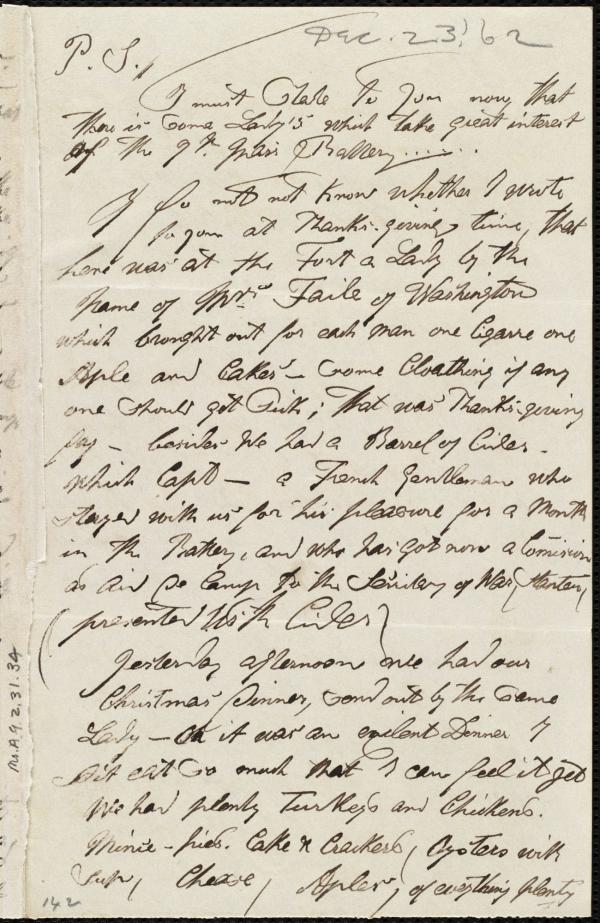 Dec. 23, 62
P. S.
I must State to you now, that
there is Some Lady's which take great interest
of the 9th Mass Battery.......
I do not not know whether I wrote
to you at Thanks-giving time, that
here was at the Fort a Lady by the
name of Mrs Faile of Washington
which brought out for each man one Cigarre one
Aple and Cakes - Some Cloathing if any
one Should get Sick; that was Thanks-giving
day - besides We had a Barrel of Cider
which Capt - a French gentleman who
stayed with us for his pleasure for a Month
in the Battery, and who has got now a Comision
as aid De Camp to the Secretary of War, Stanton,
(presented us with Cider)
Yesterday afternoon we had our
Christmas Dinner, Send out by the Same
Lady - it was an exilent Dinner I
did eat So much that I can feel it yet
We had plenty Turkeys and Chickens.
Mince-pies. Cake & Crackers, Oysters with
Sup, Cheese, Aples, of everything plenty
142
Ms.A.9.2.31.34